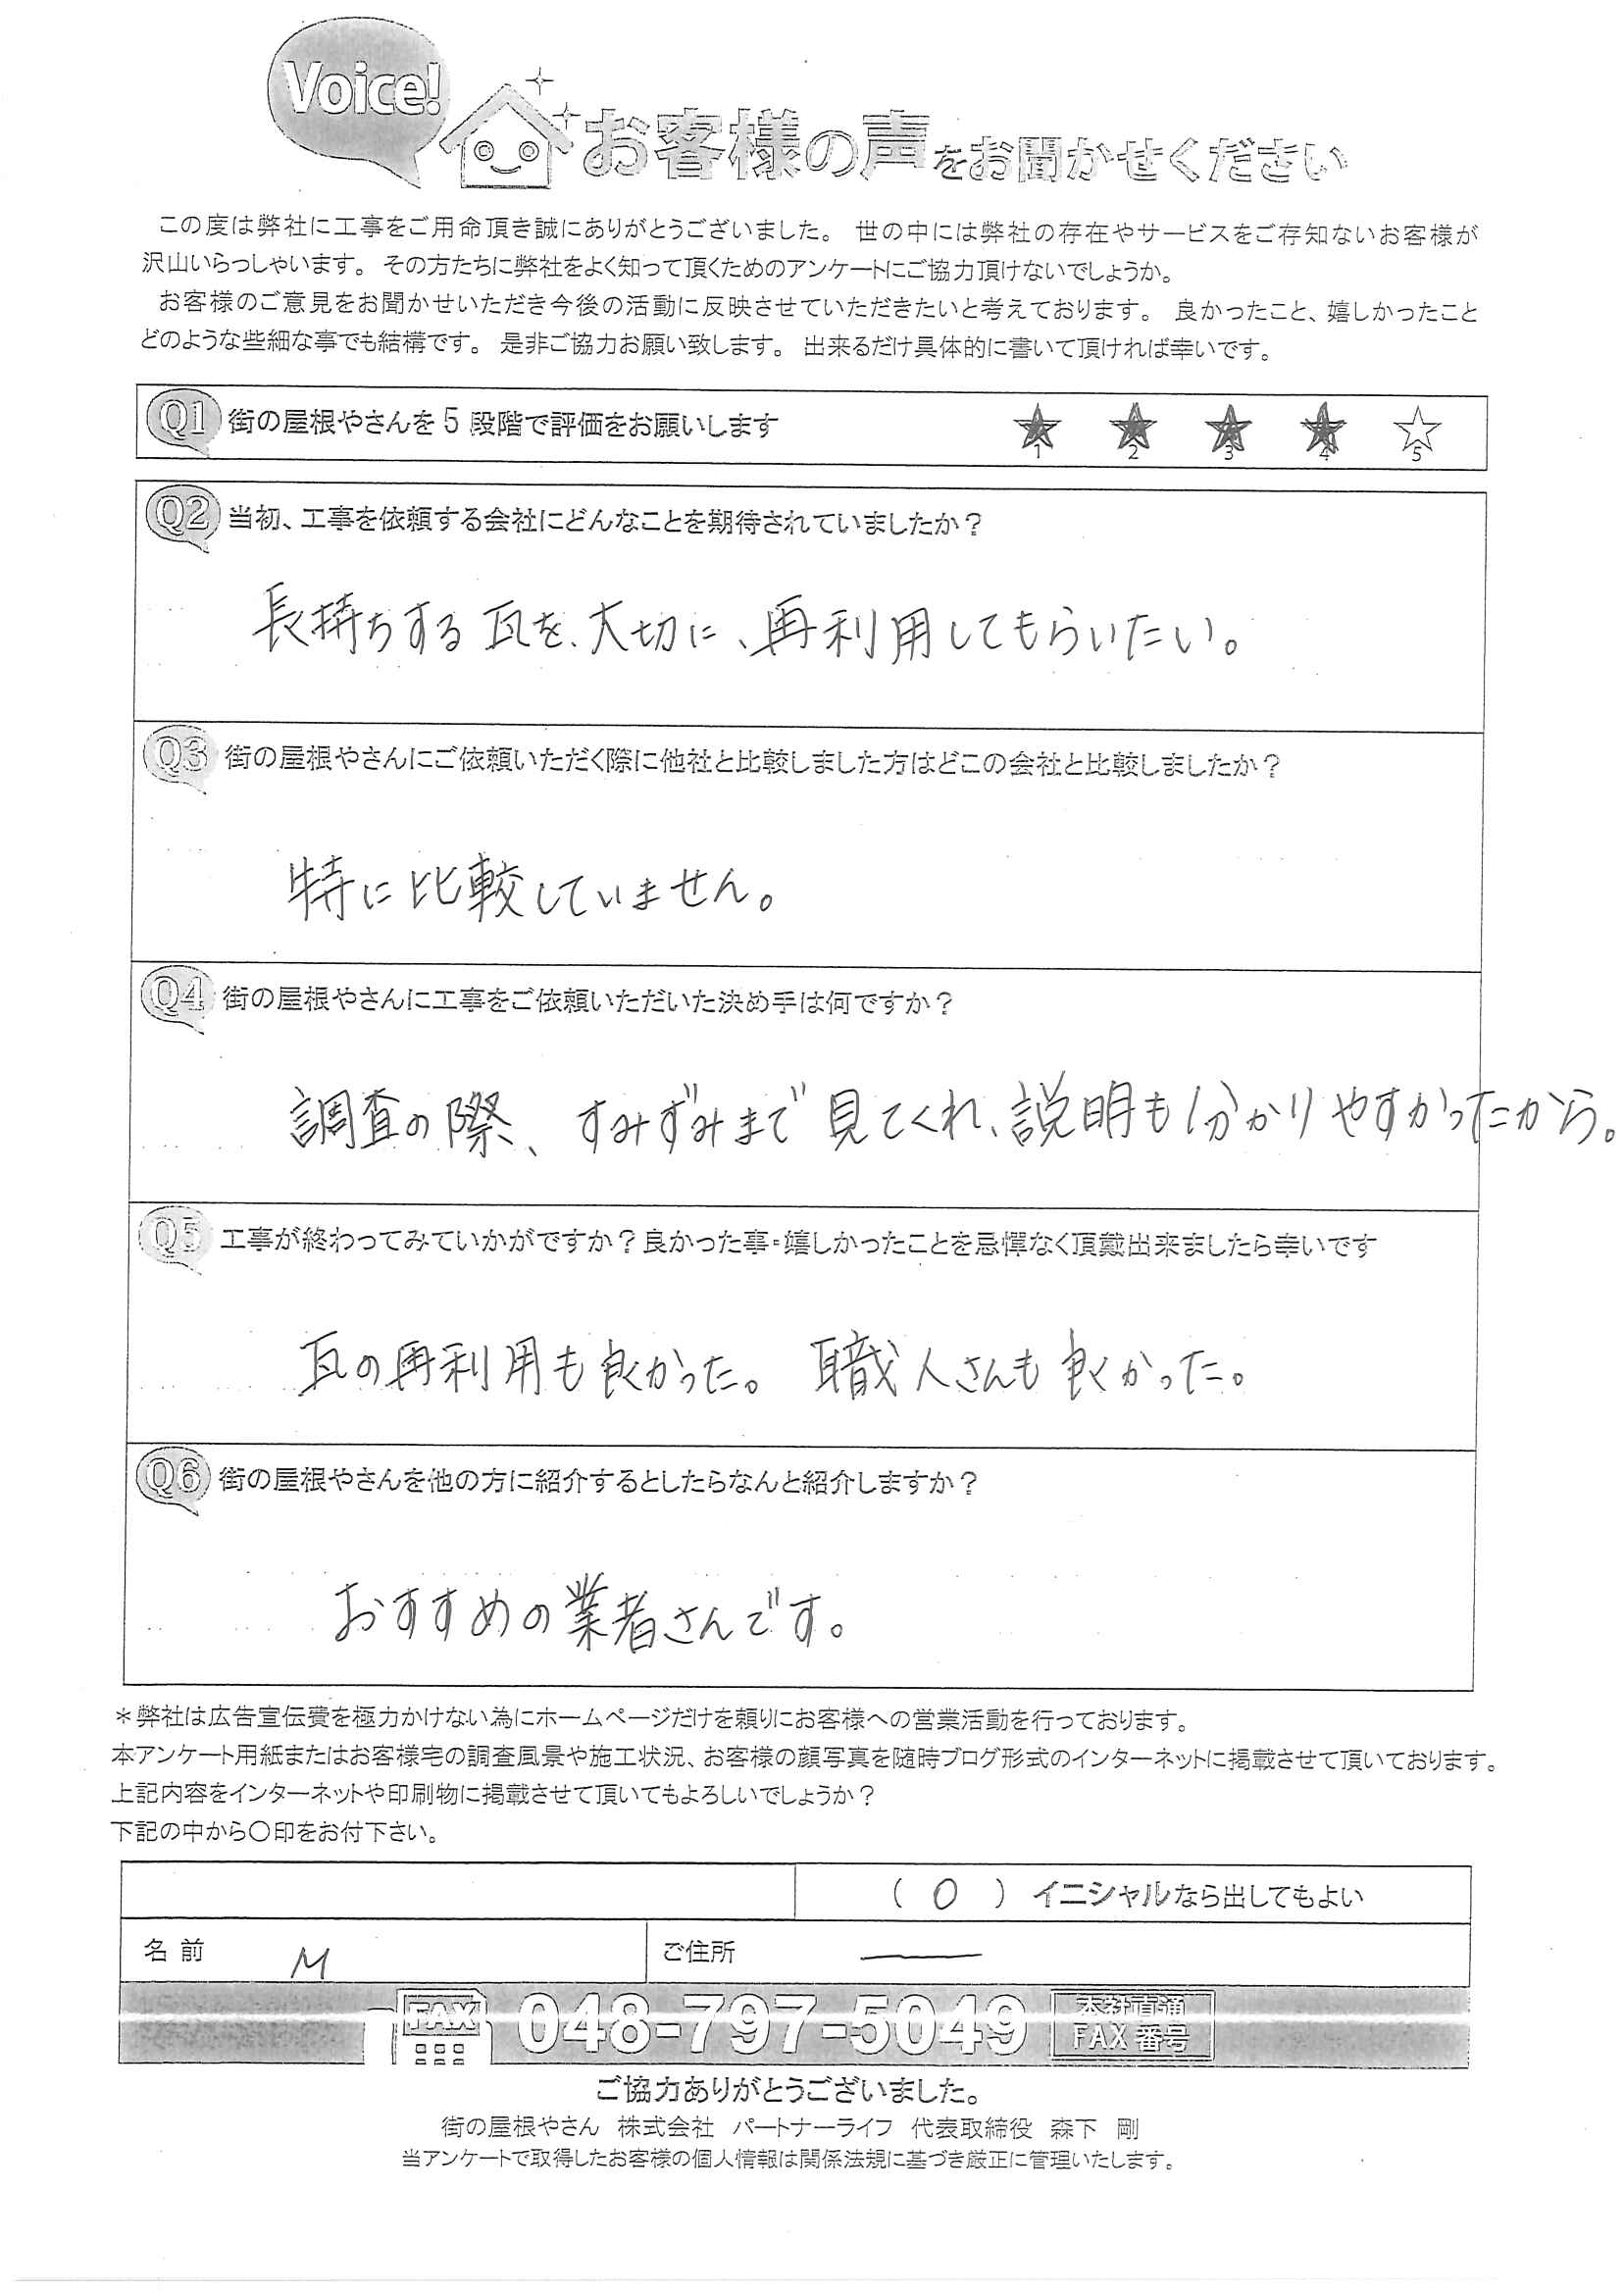 Voice!
お客様の声をお聞かせください
この度は弊社に工事をご用命頂き誠にありがとうございました。 世の中には弊社の存在やサービスをご存知ないお客様が
沢山いらっしゃいます。 その方たちに弊社をよく知って頂くためのアンケートにご協力頂けないでしょうか。
お客様のご意見をお聞かせいただき今後の活動に反映させていただきたいと考えております。 良かったこと、嬉しかったこと
どのような些細な事でも結構です。 是非ご協力お願い致します。 出来るだけ具体的に書いて頂ければ幸いです。
Q1 街の屋根やさんを5段階で評価をお願いします ★ ★ ★ ★ ☆
1 2 3 4 5
Q2 当初、工事を依頼する会社にどんなことを期待されていましたか?
長持ちする瓦を、大切に、再利用してもらいたい。
Q3 街の屋根やさんにご依頼いただく際に他社と比較しました方はどこの会社と比較しましたか?
特に比較していません。
Q4 街の屋根やさんに工事をご依頼いただいた決め手は何ですか?
調査の際、すみずみまで見てくれ、説明も分かりやすかったから。
Q5 工事が終わってみていかがですか?良かった事・嬉しかったことを忌憚なく頂戴出来ましたら幸いです
瓦の再利用も良かった。 職人さんも良くかった。
Q6 街の屋根やさんを他の方に紹介するとしたらなんと紹介しますか?
おすすめの業者さんです。
*弊社は広告宣伝費を極力かけない為にホームページだけを頼りにお客様への営業活動を行っております。
本アンケート用紙またはお客様宅の調査風景や施工状況、お客様の顔写真を随時ブログ形式のインターネットに掲載させて頂いております。
上記内容をインターネットや印刷物に掲載させて頂いてもよろしいでしょうか?
下記の中から〇印をお付下さい。
( 〇 ) イニシャルなら出してもよい
名 前 M ご住所 ―
FAX 048-797-5049 本社直通
FAX番号
ご協力ありがとうございました。
街の屋根やさん 株式会社 パートナーライフ 代表取締役 森下 剛
当アンケートで取得したお客様の個人情報は関係法規に基づき厳正に管理いたします。